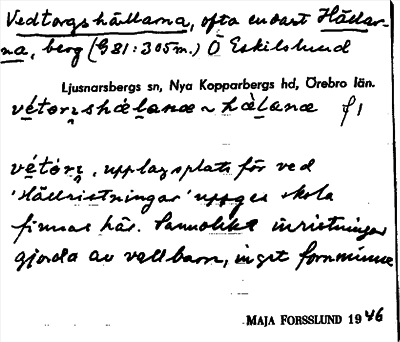 Vedtorgshällarna, ofta endast Hällar-
na, berg (G81:305m.) Ö Eskilslund
Ljusnarsbergs sn, Nya Kopparbergs hd, Örebro län.
vétorꭍshælanæ ~ hælanæ f1
vétórꭍ, upplagsplats för ved
'Hällristningar' uppges skola
finnas här. Sannolikt inristningar
gjorda av vallbarn, inget fornminne
MAJA FORSSLUND 1946